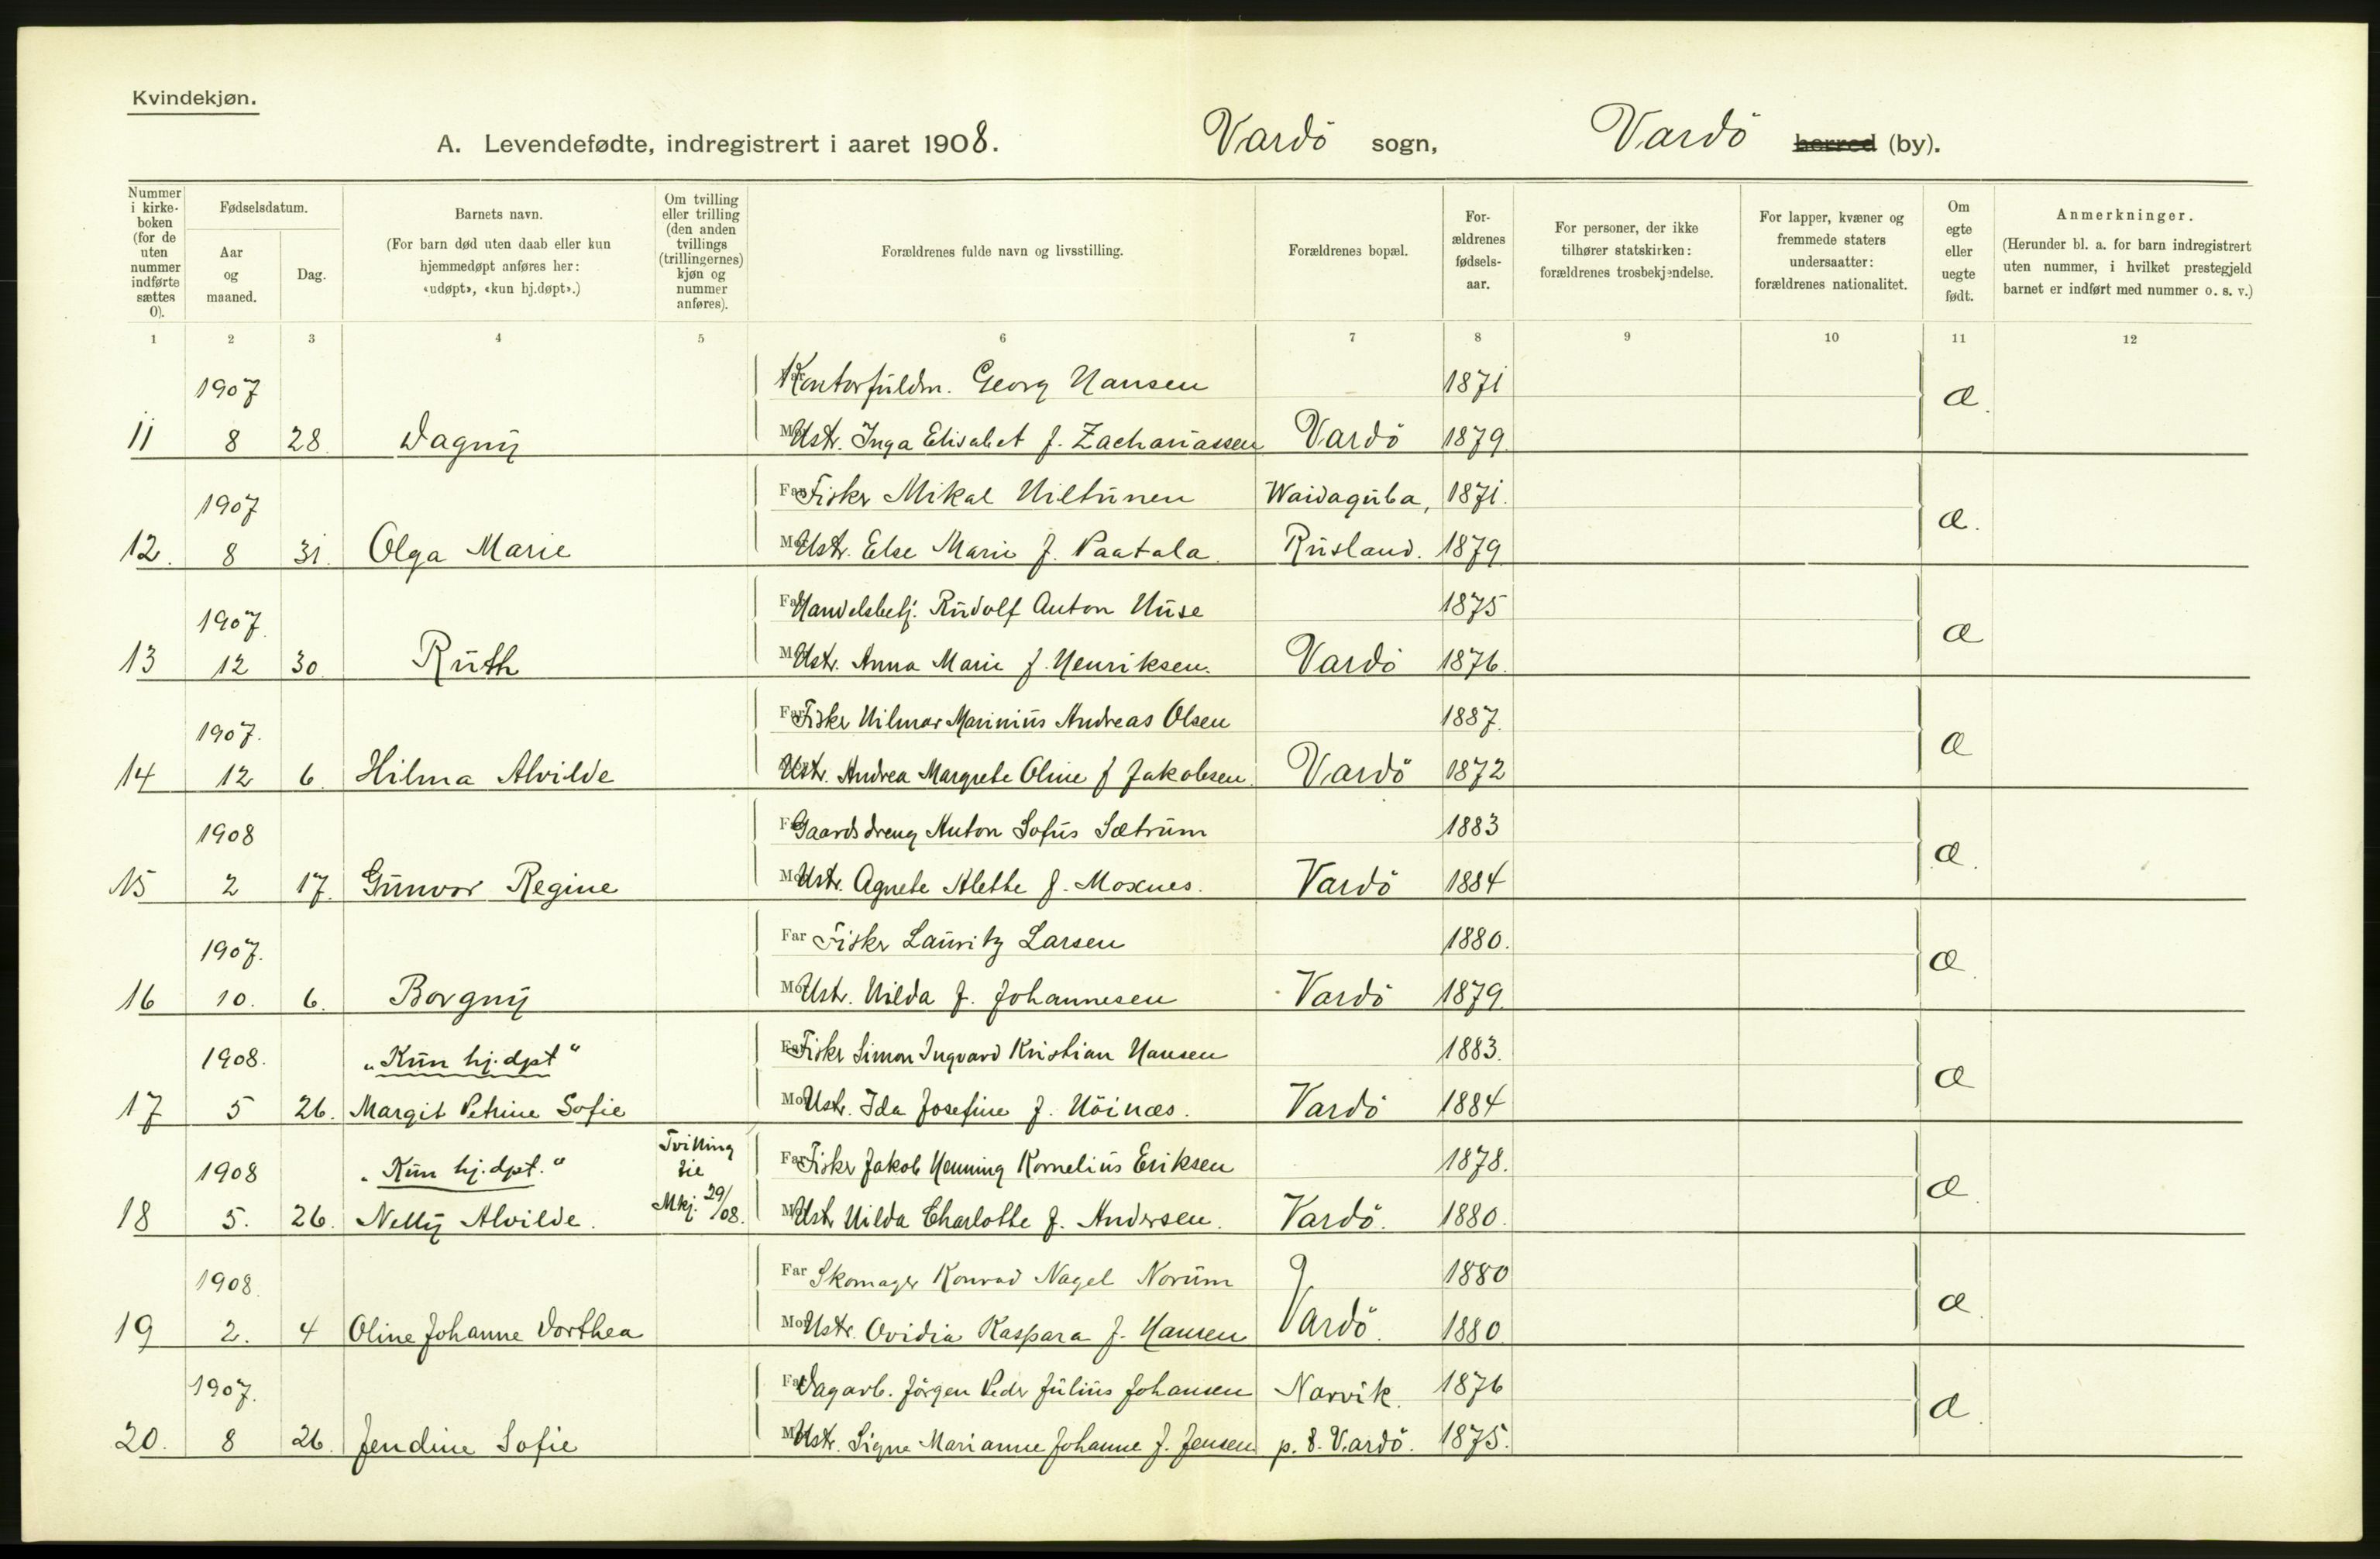 Kvindekjøn.
A. Levendefødte, indregistrert i aaret 1908. Vardö sogn, Vardö herred (by).
Nummer i kirkeboken (for de uten nummer indførte sættes 0).
Fødselsdatum.
Aar og maaned.
Dag.
Barnets navn.
(For barn død uten daab eller kun hjemmedøpt anføres her: «udøpt», «kun hj.døpt».)
Om tvilling eller trilling (den anden tvillings (trillingernes) kjøn og nummer anføres).
Forældrenes fulde navn og livsstilling.
Forældrenes bopæl.
Forældrenes fødselsaar.
For personer, der ikke tilhører statskirken: forældrenes trosbekjendelse.
For lapper, kvæner og fremmede staters undersaatter: forældrenes nationalitet.
Om egte eller uegte født.
Anmerkninger.
(Herunder bl. a. for barn indregistrert uten nummer, i hvilket prestegjeld barnet er indført med nummer o. s. v.)
1 2 3 4 5 6 7 8 9 10 11 12
1907 Far Kontorfuldm. Georg Hansen 1871 æ.
11 8 28. Dagny Mor Hstr. Inga Elisabet f. Zachariassen Vardö 1879.
1907 Far Fisker Mikal Hiltunen Waidaguba, 1871. æ.
12. 8 31. Olga Marie Mor Hstr. Else Marie f. Paatala. Rusland. 1879
1907. Far Handelsbetj. Rudolf Anton Huse 1875 æ
13 12 30. Ruth Mor Hstr. Anna Marie f. Henriksen. Vardö 1876.
1907. Far Fisker Hilmar Marinius Andreas Olsen 1887. æ
14 12 6. Hilma Alvilde Mor Hstr. Andrea Margrete Oline f Jakobsen. Vardö 1872
1908 Far Gaardsdreng Anton Sofus Sætrum 1883 æ.
15 2 17. Gunvor Regine Mor Hstr. Agnete Alette f. Moxnes. Vardö 1884
1907. Far Fisker Lauritz Larsen 1880. æ
16 10. 6. Borgny Mor Hstr. Hilda f. Johannesen Vardö 1879.
1908. „Kun hj.dpt“ Far Fisker Simon Ingvard Kristian Hansen 1883. æ
17 5 26. Margit Petrine Sofie Mor Hstr. Ida Josefine f. Höinæs. Vardö 1884
1908 „Kun hj.dpt.“ Tvilling sie Far Fisker Jakob Henning Kornelius Eriksen 1878. æ.
18 5. 26. Nelly Alvilde. Mkj. 29/08. Mor Hstr Hilda Charlotte f. Andersen. Vardö. 1880.
1908. Far Skomager Konrad Nagel Norum 1880 æ.
19 2. 4 Oline Johanne Dorthea Mor Hstr. Ovidia Kaspara f. Hansen Vardö. 1880
1907. Far Dagarb. Jörgen Peder Julius Johansen Narvik. 1876 æ.
20. 8 26. Jendine Sofie Mor Hstr. Signe Marianne Johanne f. Jensen p. t. Vardö. 1875.